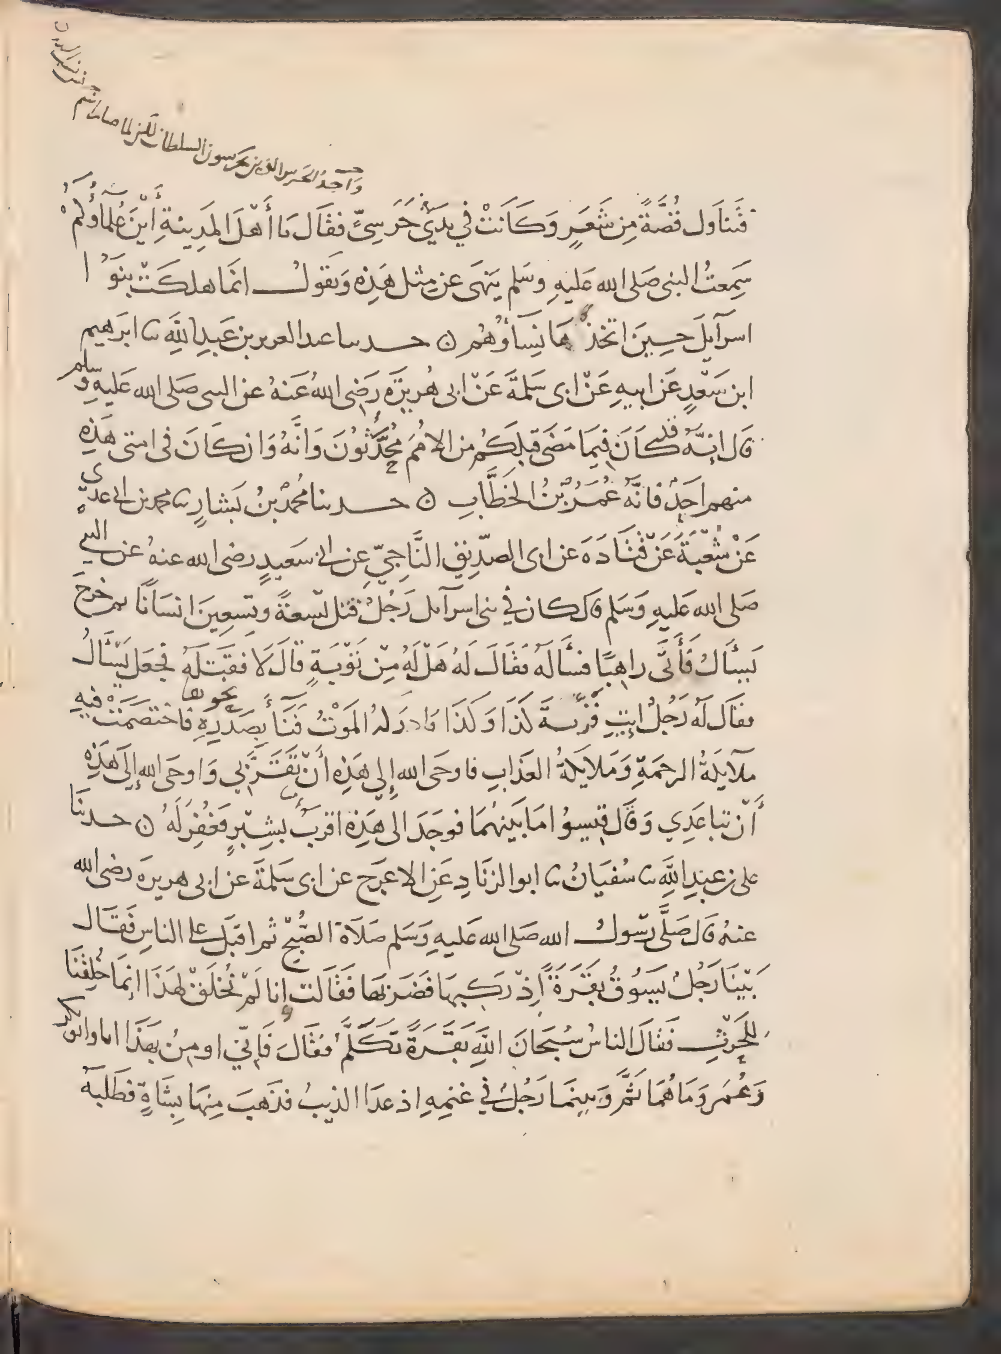 واحد الحرس الذين يحرسون السلطان
فتناول قُصَّةً مِن شَعَرٍ وَكَانَتْ في يَدَيْ حَرَسِيٍّ فقَال يَا أَهْلَ المَدِينةِ أَيْنَ عُلَمَاؤُكُمْ
سَمِعتُ النبي صَلى الله عَليهِ وسَلم يَنهَى عَن مِثل هَذِهِ وَيَقولُ انمَا هلكَتْ بنوا
اسرآيلَ حِينَ اتخَذهَا نِسَاؤُهُم ن حدثنا عبد العزيز بن عَبدِ اللَّهِ ثنا ابرَهيم
ابن سَعْدٍ عَن ابيهِ عَنْ ابى سَلمَةَ عَنْ ابى هُريرَة رَضِى اللهُ عَنهُ عن النبى صَلى الله عَليهِ وسلم
قال انِهُ قد كانَ فِيمَا مَضَى قبلَكُم من الامُم مُحَدَّثُونَ وَانَّهُ وَان كَانَ فى امتى هَذِهِ
منهم احَدٌ فانَّهُ عُمَرُ بْنُ الخَطَّابِ ن حدثنا مُحمّدُ بْنُ بَشارٍ ثنا محمد بن ابى عدي
عَنْ شُعْبَةَ عَنْ قَتَادَةَ عَن ابى الصِدّيق النَّاجِيّ عَن ابى سَعيدٍ رضى الله عنهُ عَن النبي
صَلى الله عَليهِ وَسَلم قال كان في بنى اسرآىل رَجُلٌ قتل تسعَةً وتِسعِينَ انسَانًا ثم خرجَ
يَسْأَلُ فَأَتَى راهِبًا فسَأَلَهُ فقَالَ لَهُ هَلْ لَهُ مِنْ تَوْبَةٍ قَالَ لَا فقَتَلَهُ فَجَعَلَ يَسْأَلُ
فقال لَهُ رَجُلٌ ايتِ قَرْيَةَ كَذَا وَكَذَا فادرَكهُ الموْتُ فَنَأَ بِصَدْرِهِ نحوها فاختَصَمَتْ فيهِ
ملآيِكةُ الرحمَةِ وَمَلايِكَةُ العَذَابِ فاوحَى الله إِلى هَذِهِ أَنْ تَقَرَّبي وَاوحَى الله إِلَى هَذِهِ
أَنْ تبَاعَدِي وَقال قِيسُوا مَا بَينهُمَا فوجَدَ الى هَذِهِ اقرَبُ بِشِبْرٍ فغُفِرَ لَهُ ن حدثنا
على بن عبدِ اللَّهِ ثنا سُفيَانُ ثنا ابو الزنَادِ عَنِ الاعرَج عَن ابى سَلمَةَ عَن ابى هريرة رضى الله
عنهُ قال صَلَّى رَسُولُ الله صَلى الله عَليهِ وَسَلم صَلَاةَ الصُّبْحِ ثم اقبَلَ على الناسِ فَقَال
بَيْنَا رَجُلٌ يَسُوقُ بَقَرَةً إِذْ رَكِبهَا فَضَرَبهَا فقَالت إنا لَمْ نُخلَقْ لِهَذَا إنمَا خُلِقْنَا
لِلحَرْثِ فَقالَ الناسُ سُبْحَانَ اللَّهِ بَقَرَةٌ تَكَلَّمُ فقَالَ فَإِنّي اومِنُ بهَذَا انا وابو بكر
وَعُمَرُ وَمَا هُمَا ثَمَّ وَبينمَا رَجُلٌ في غنمِهِ اذ عدَا الذيبُ فذَهَبَ مِنهَا بِشَاةٍ فطَلبَهُ